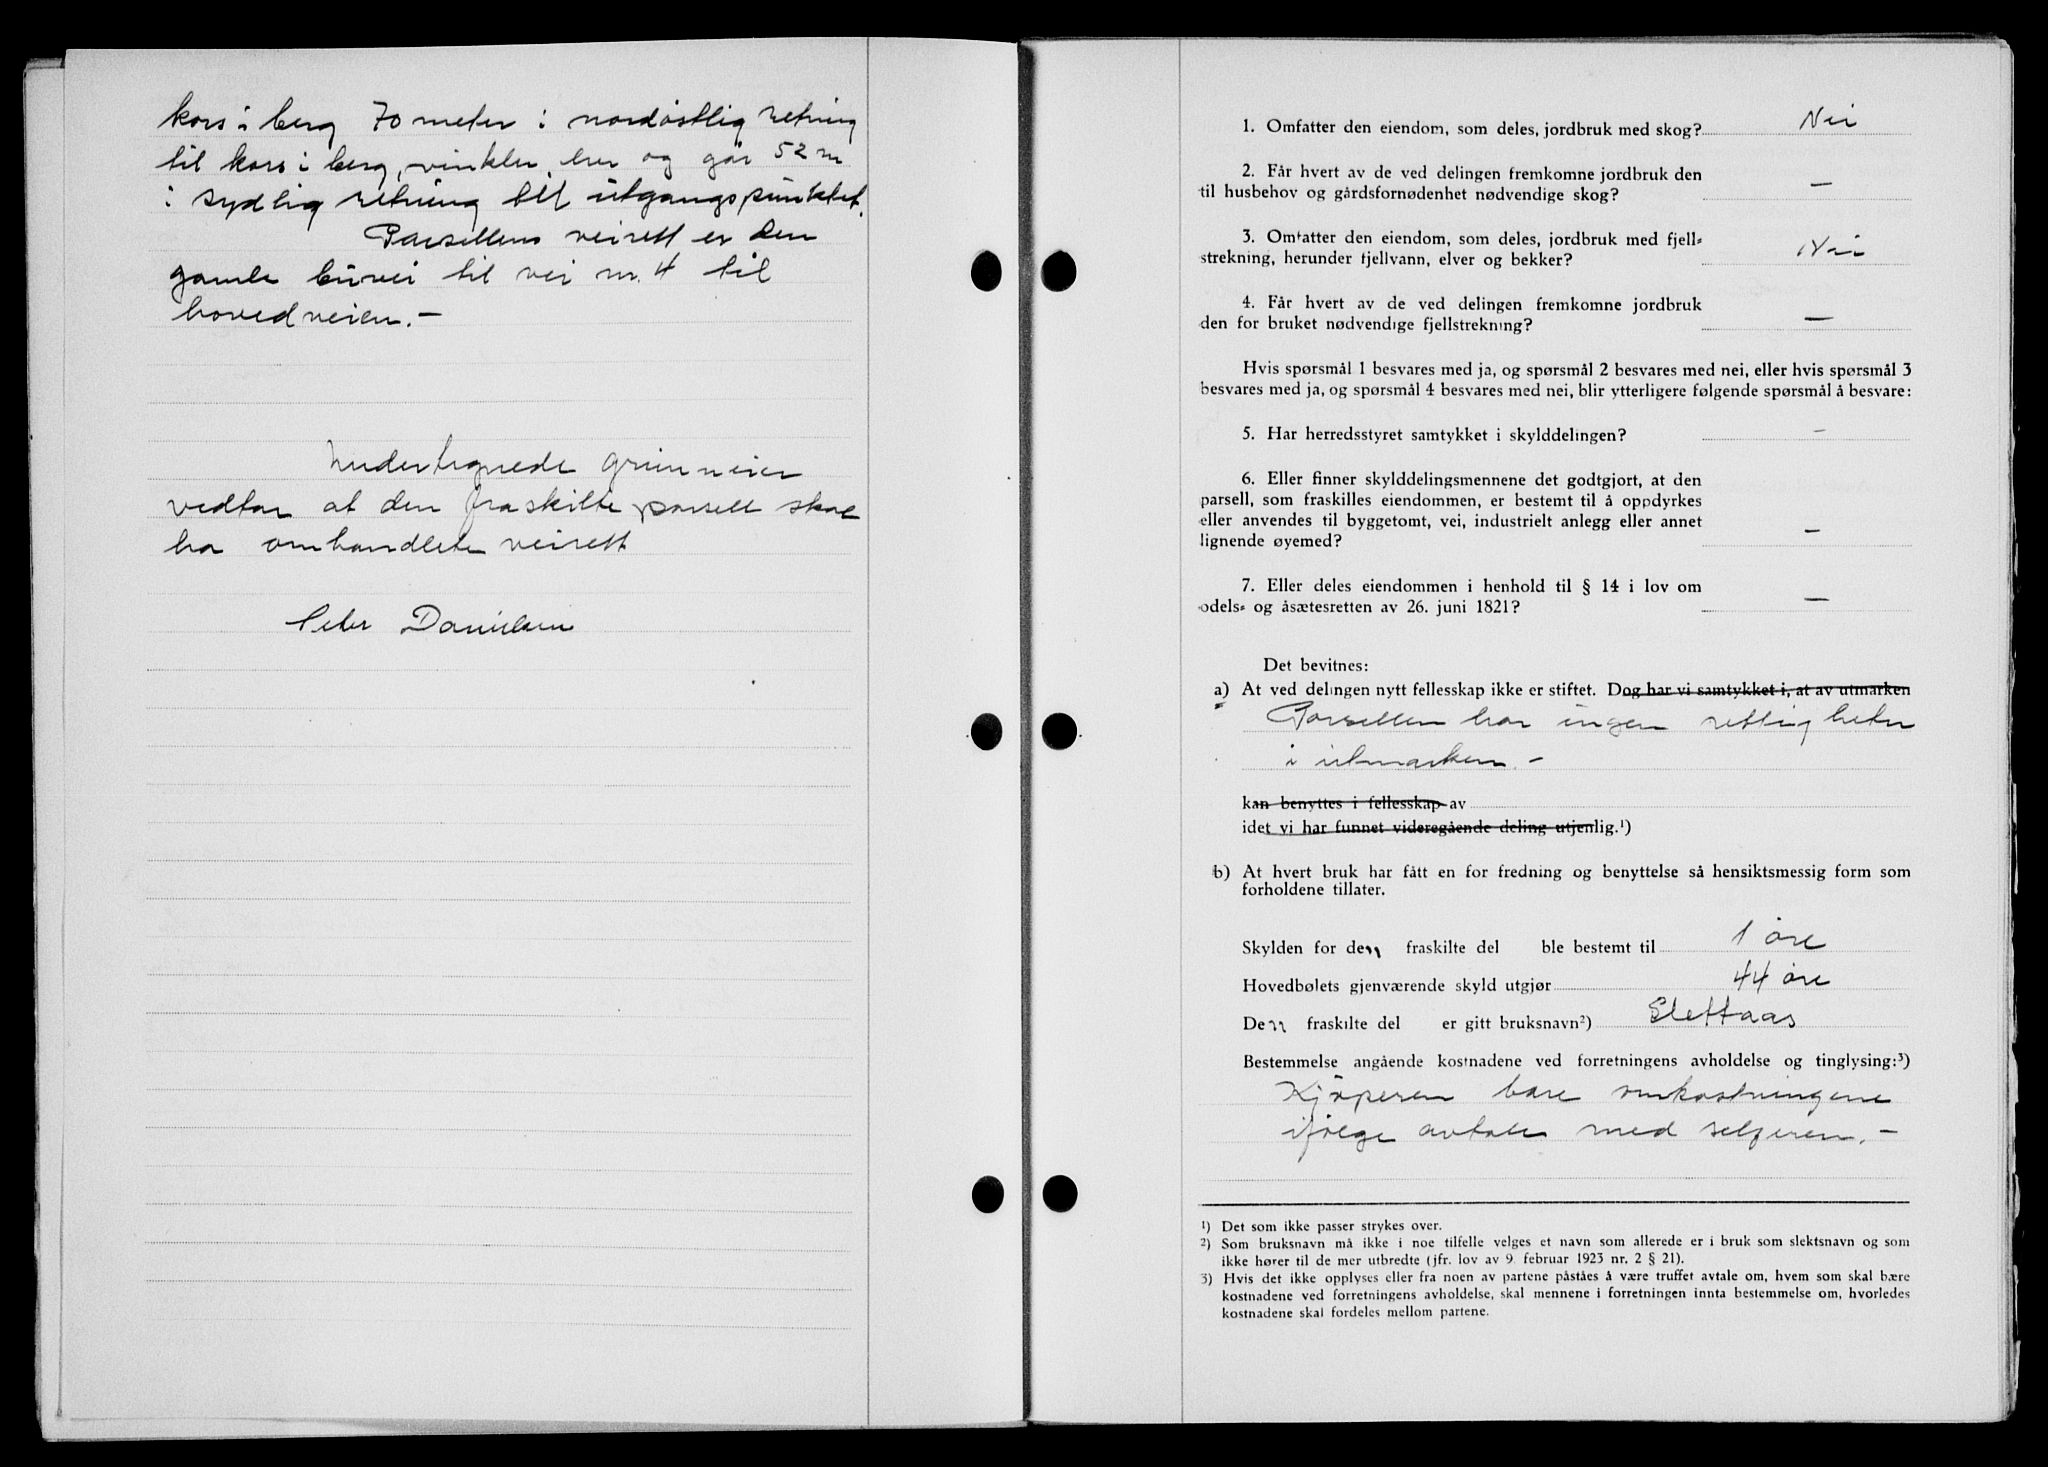 kors i berg 70 meter i nordøstlig retning
til kors i berg, vinkler her og går 52 m
i sydlig retning til utgangspunktet.
Parsellens veirett er den
gamle buvei til vei nr. 4 til
hovedveien.-
Undertegnede grunneier
vedtar at den fraskilte parsell skal
ha omhandlete veirett
Peter Danielsen
1. Omfatter den eiendom, som deles, jordbruk med skog? Nei
2. Får hvert av de ved delingen fremkomne jordbruk den
til husbehov og gårdsfornødenhet nødvendige skog? —
3. Omfatter den eiendom, som deles, jordbruk med fjell=
strekning, herunder fjellvann, elver og bekker? Nei
4. Får hvert av de ved delingen fremkomne jordbruk
den for bruket nødvendige fjellstrekning? —
Hvis spørsmål 1 besvares med ja, og spørsmål 2 besvares med nei, eller hvis spørsmål 3
besvares med ja, og spørsmål 4 besvares med nei, blir ytterligere følgende spørsmål å besvare:
5. Har herredsstyret samtykket i skylddelingen? -
6. Eller finner skylddelingsmennene det godtgjort, at den
parsell, som fraskilles eiendommen, er bestemt til å oppdyrkes
eller anvendes til byggetomt, vei, industrielt anlegg eller annet
lignende øyemed? —
7. Eller deles eiendommen i henhold til § 14 i lov om
odels= og åsætesretten av 26. juni 1821? —
Det bevitnes:
a) At ved delingen nytt fellesskap ikke er stiftet. Dog har vi samtykket i, at av utmarken
Parsellen har ingen rettigheter
i utmarken.-
kan benyttes i fellesskap av
idet vi har funnet videregående deling utjenlig.¹)
b) At hvert bruk har fått en for fredning og benyttelse så hensiktsmessig form som
forholdene tillater.
Skylden for den fraskilte del ble bestemt til 1 øre
Hovedbølets gjenværende skyld utgjør 44 øre
Den fraskilte del er gitt bruksnavn²) Slettaas
Bestemmelse angående kostnadene ved forretningens avholdelse og tinglysing:³)
Kjøperen bære omkostningene
ifølge avtale med selgeren.-
¹) Det som ikke passer strykes over.
²) Som bruksnavn må ikke i noe tilfelle velges et navn som allerede er i bruk som slektsnavn og som
ikke hører til de mer utbredte (jfr. lov av 9. februar 1923 nr. 2 § 21).
3) Hvis det ikke opplyses eller fra noen av partene påståes å være truffet avtale om, hvem som skal bære
kostnadene ved forretningens avholdelse, skal mennene i forretningen innta bestemmelse om, hvorledes
kostnadene skal fordeles mellom partene.